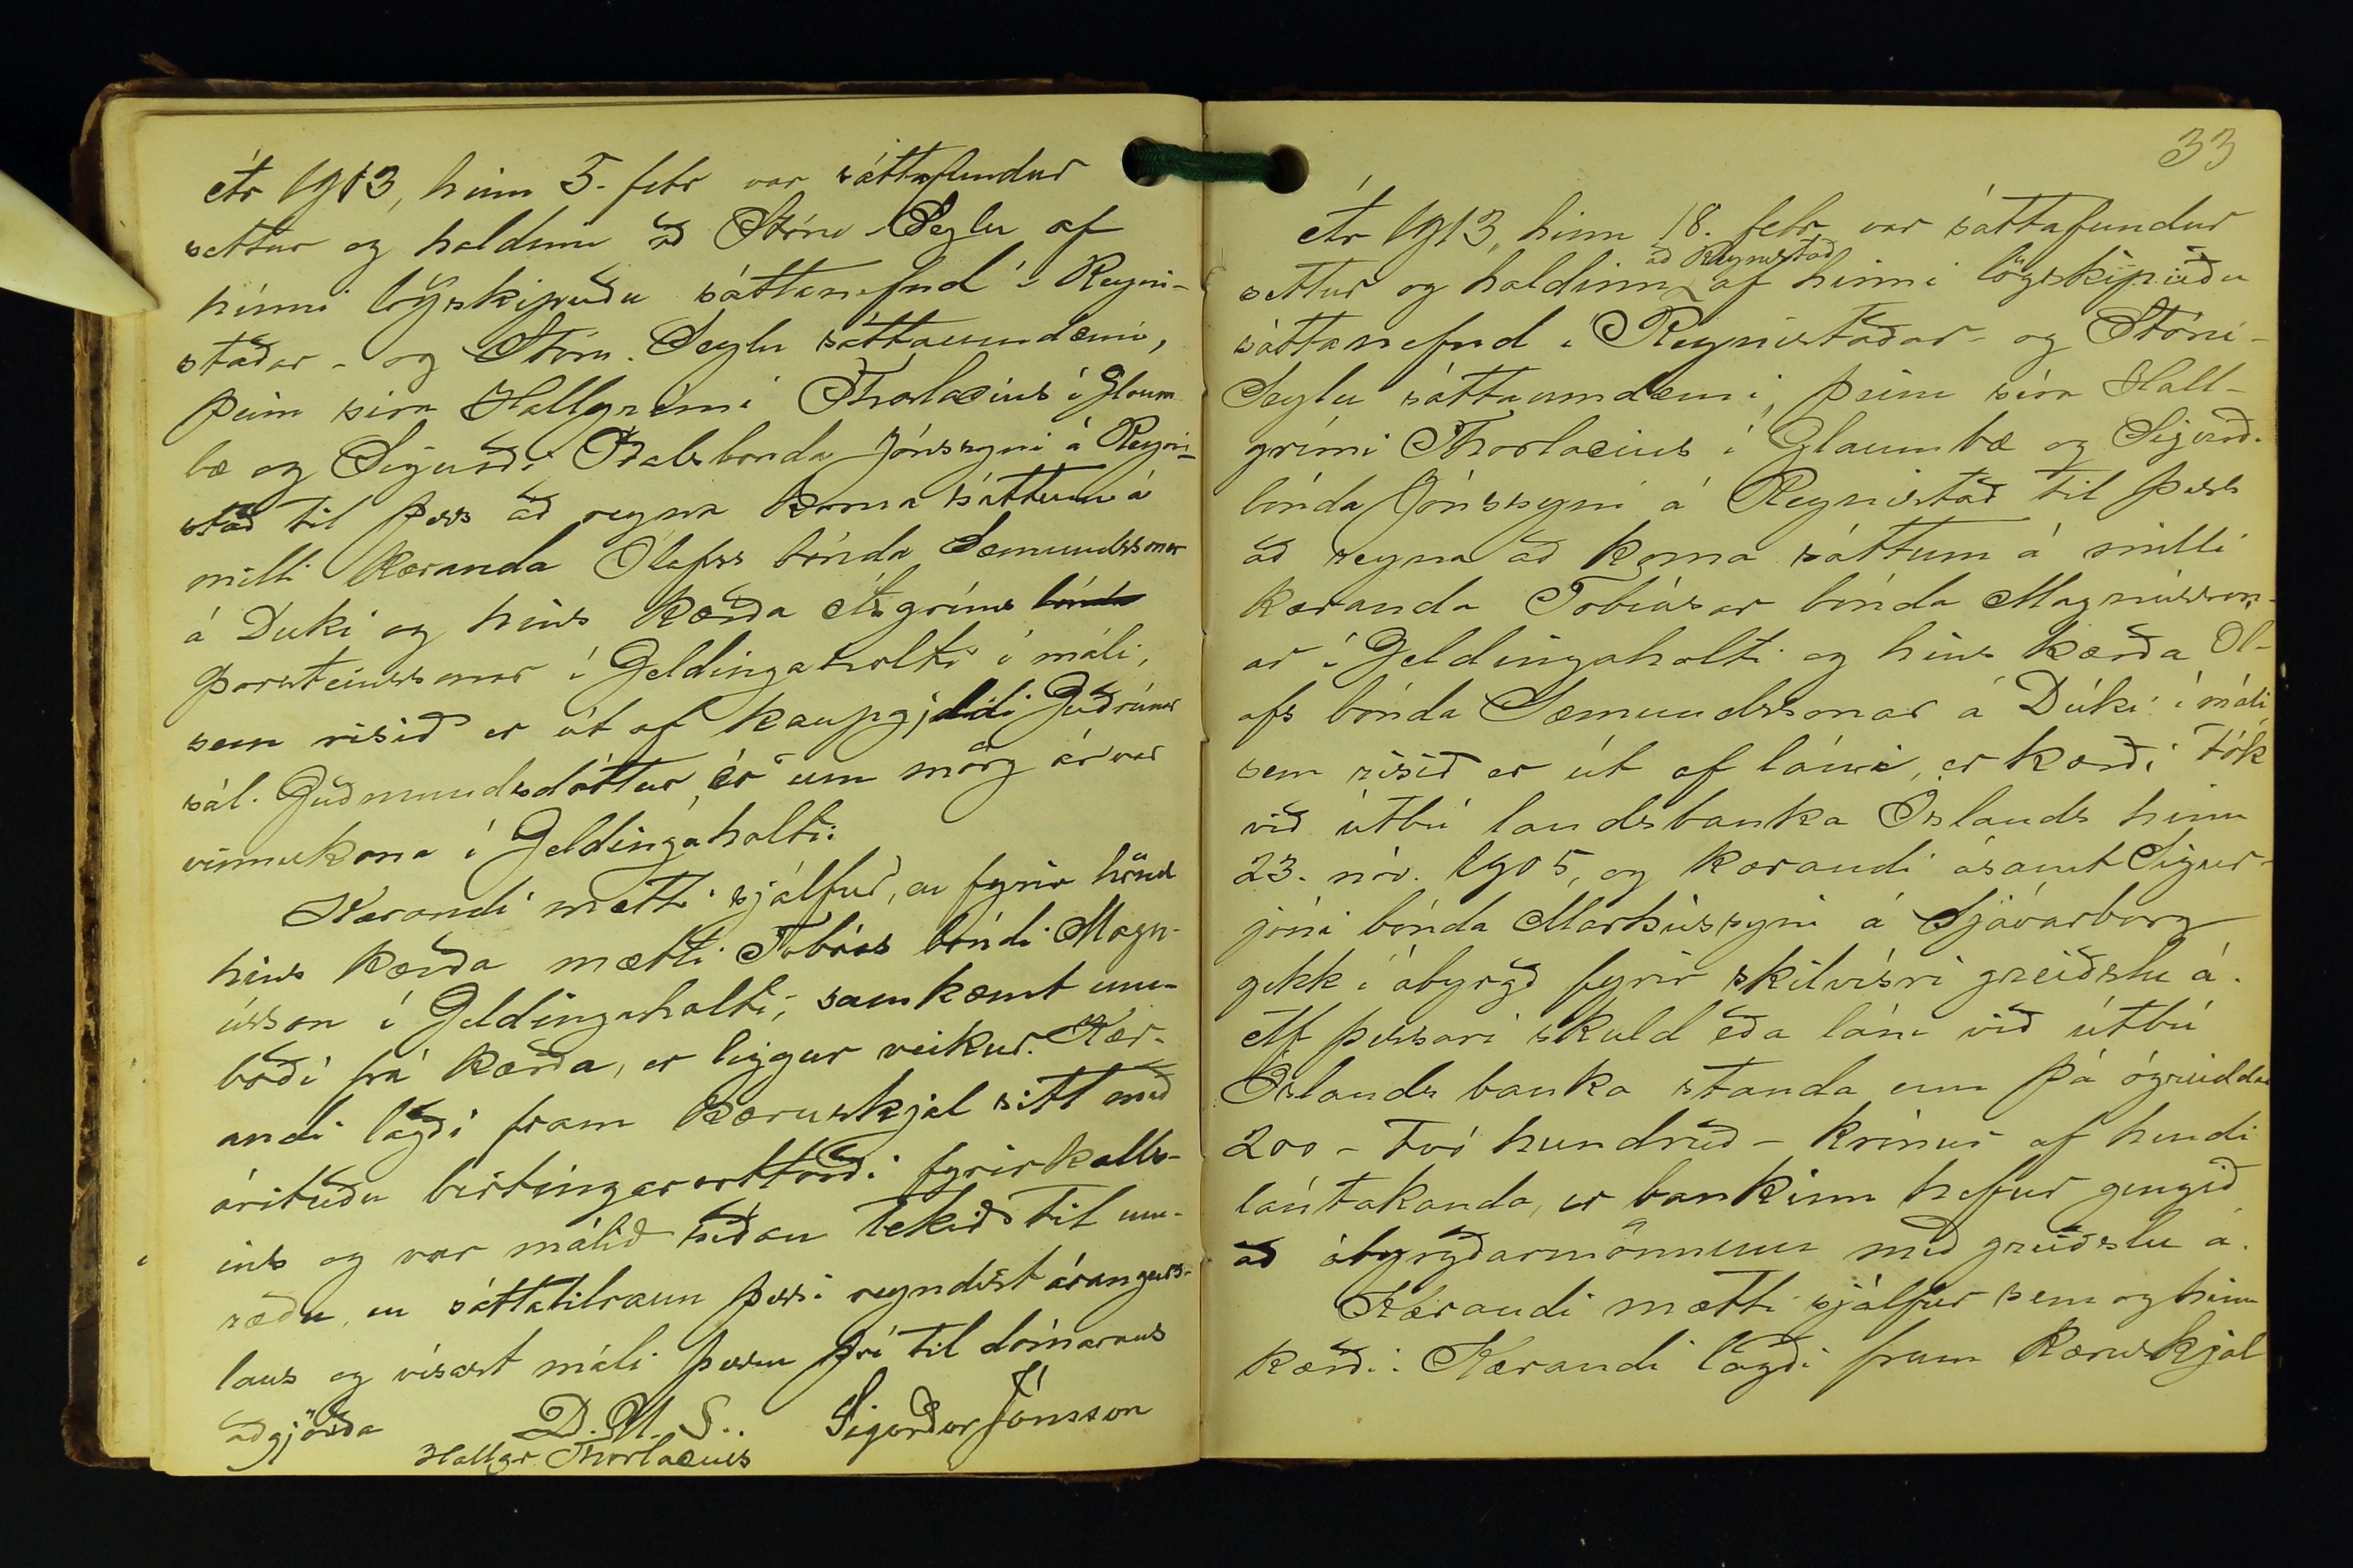 Ár 1913, hinn 5. febr var sáttafundur
settur og haldinn að Stóru-Seylu af
hinni lögskipuðu sáttanefnd í Reyni-
staðar- og Stóru-Seylu sáttaumdæmi,
þeim síra Hallgrími Thorlacius í Glaum
bæ og Sigurði Óðalsbónda Jónssyni á Reyni-
stað til þess að reyna koma sáttum á
milli kæranda Ólafss bónda Sæmundssonar
á Dúki og hins kærða Ásgríms bónda
Þorsteinssonar í Geldingaholti í máli,
sem risið er út af kaupgjaldi Guðrúnar
sál. Guðmundsdóttur, er um mörg ár var
vinnukona í Geldingaholti.
Kærandi mætti sjálfur, en fyrir hönd
hins kærða mætti Tobías bóndi Magn-
ússon í Geldingaholti, samkæmt um-
boði frá kærða, er liggur veikur. Kær-
andi lagði fram kæruskjal sitt með
árituðu birtingarvottorði fyrirkalls-
ins og var málið síðan tekið til um-
ræðu, en sáttatilraun þessi reyndist árangurs-
laus og vísast máli þessu því til dómarans
aðgjörða D. U. S.. Sigurður Jónsson
Hallgr. Thorlacius
33
Ár 1913, hinn 18. febr. var sáttafundur
að Reynistað
settur og haldinn af hinni lögskipuðu
sáttanefnd í Reynistaðar- og Stóru-
Seylu sáttaumdæmi, þeim síra Hall-
grími Thorlacius í Glaumbæ og Sigurð.
bónda Jónssyni á Reynistað til þess
að reyna að koma sáttum á milli
kæranda Tobíasar bónda Magnússon-
ar í Geldingaholti og hins kærða Ól-
afs bónda Sæmundssonar á Dúki í máli
sem risið er út af láni, er kærði tók
við útbú landsbanka Íslands hinn
23. nóv. 1905, og kærandi ásamt Sigur-
jóni bónda Markússyni á Sjávarborg
gekk í ábyrgð fyrir skilvísri greiðslu á.
Af þessari skuld eða láni við útbú
Íslands banka standa enn þá ógreiddar
200 - tvö hundruð - krónur af hendi
lántakanda, er bankinn hefur gengið
að ábyrgðarmönnum með greiðslu á.
Kærandi mætti sjálfur sem og hinn
kærði. Kærandi lagði fram kæruskjal